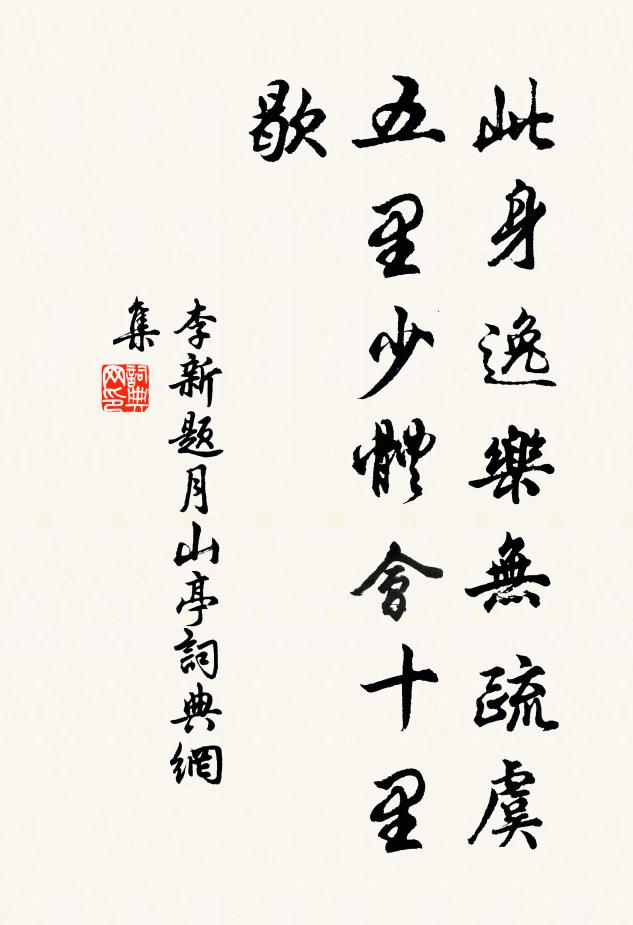 此身逸樂無疏虞
五里少體會十里
歇
李新題月山亭詞典網
集
詞典
网印